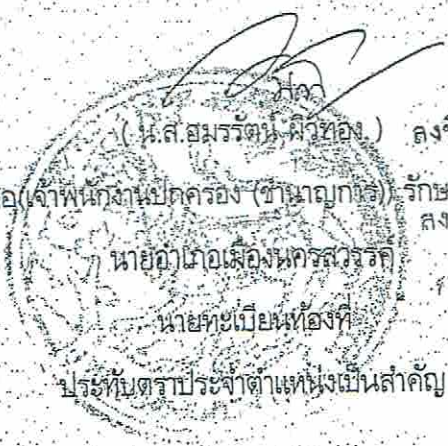 ( น.ส.อมรรัตน์ ผิวทอง ) ลงชื่
อ(เจ้าพนักงานปกครอง (ชำนาญการ)) รักษ
ลง
นายอำเภอเมืองนครสวรรค์
นายทะเบียนท้องที่
ประทับตราประจำตำแหน่งเป็นสำคัญ